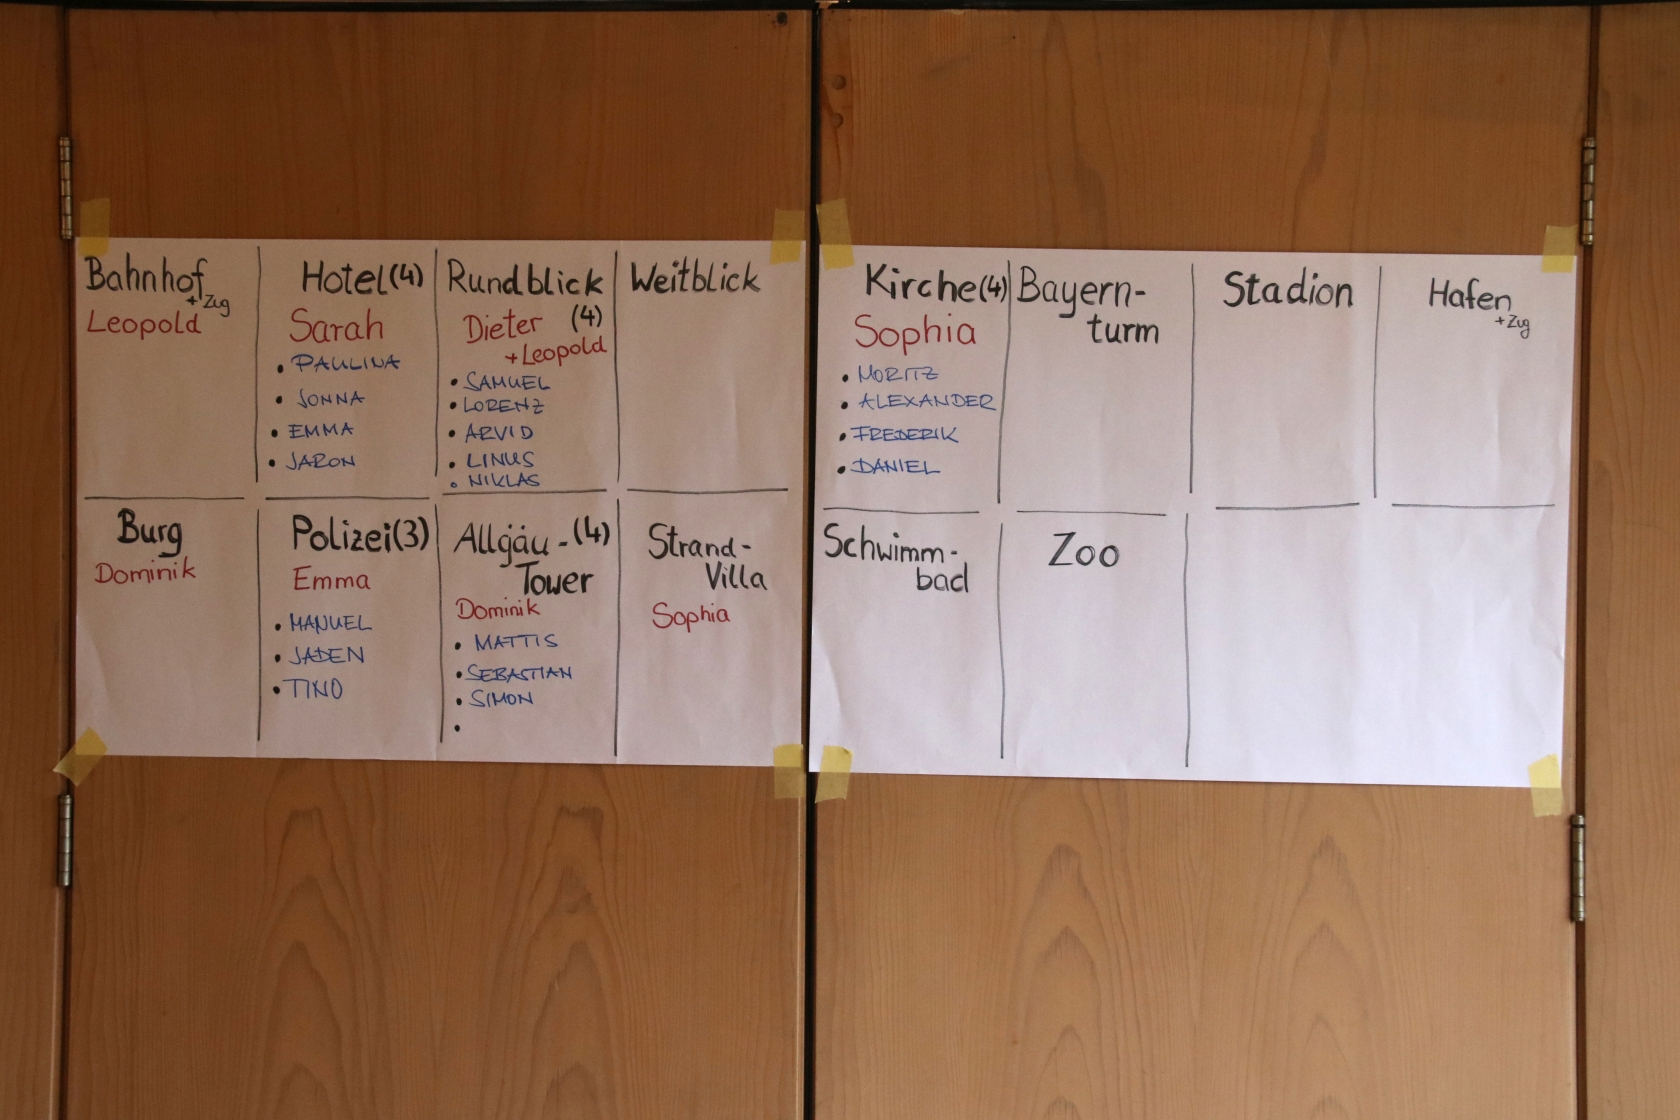 Bahnhof
+ Zug
Leopold
Hotel (4)
Sarah
• PAULINA
• JONNA
• EMMA
• JARON
Rundblick
(4)
Dieter
+ Leopold
• SAMUEL
• LORENZ
• ARVID
• LINUS
• NIKLAS
Weitblick
Burg
Dominik
Polizei (3)
Emma
• MANUEL
• JADEN
• TINO
Allgäu- (4)
Tower
Dominik
• MATTIS
• SEBASTIAN
• SIMON
•
Strand-
Villa
Sophia
Kirche (4)
Sophia
• MORITZ
• ALEXANDER
• FREDERIK
• DANIEL
Bayern-
turm
Stadion
Hafen
+ Zug
Schwimm-
bad
Zoo